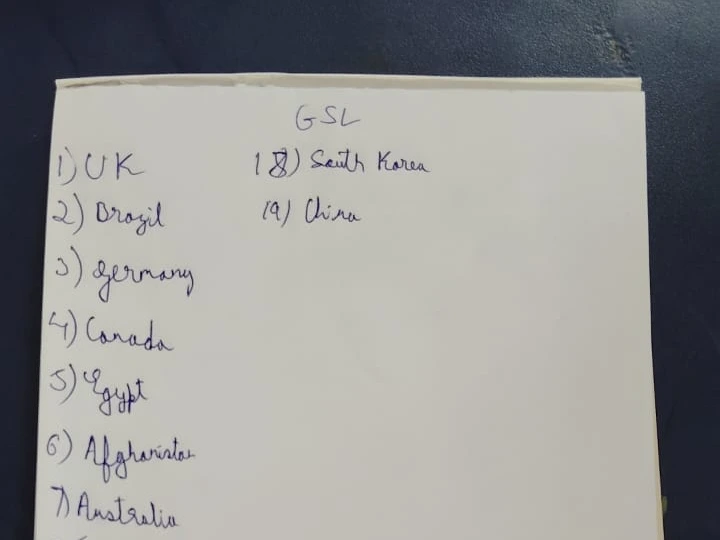 GSL
1) UK
2) Brazil
3) Germany
4) Canada
5) Egypt
6) Afghanistan
7) Australia
18) South Korea
19) China